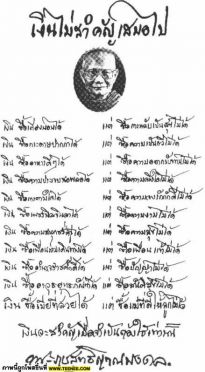 เงินไม่สำคัญเสมอไป
เงิน ซื้อเตียงนอนได้ แต่ ซื้อการหลับเป็นสุขไม่ได้
เงิน ซื้อกระดาษปากกาได้ แต่ ซื้อความเป็นกวีไม่ได้
เงิน ซื้ออาหารดีๆได้ แต่ ซื้อความอยากรับทานไม่ได้
เงิน ซื้อความประจบสอพลอได้ แต่ ซื้อความจงใจไม่ได้
เงิน ซื้อความใคร่ได้ แต่ ซื้อความจงรักภักดีไม่ได้
เงิน ซื้อเครื่องประดับได้ แต่ ซื้อความงามไม่ได้
เงิน ซื้อความสนุกได้ แต่ ซื้อความสุขไม่ได้
เงิน ซื้อเพื่อนเดินทางได้ แต่ ซื้อเพื่อนแท้ไม่ได้
เงิน ซื้อได้ แต่ ซื้อปัญญาไม่ได้
เงิน ซื้ออาวุธยุทธภัณฑ์ได้ แต่ ซื้อสันติสุขไม่ได้
เงิน ซื้อเมียที่สวยได้ แต่ ซื้อแม่ที่ดีให้ลูกไม่ได้
เงินจะสำคัญเมื่อจำเป็นต้องใช้เท่านั้น
ภาพนี้ถูกโพสต์ที่ WWW.TEENEE.COM